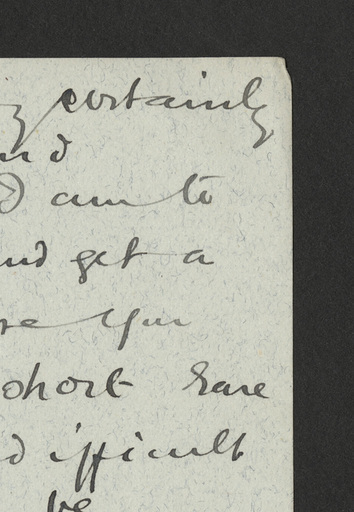 certainly
nd
I am to
and get a
re you
short
difficult
be